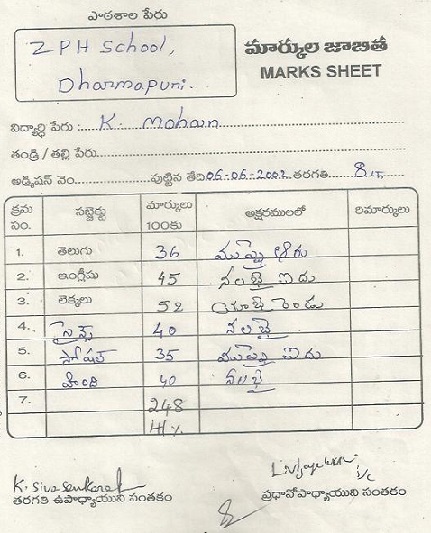 పాఠశాల పేరు
ZPH School,
Dharmapuri.
మార్కుల జాబితా
MARKS SHEET
విద్యార్థి పేరు: K. Mohan
తండ్రి / తల్లి పేరు
అడ్మిషన్ నెం. పుట్టిన తేది 06-06-2002 తరగతి 8
క్రమ సం. సబ్జెక్టు మార్కులు 100కు అక్షరములలో రిమార్కులు
1. తెలుగు 36 ముప్పై ఆరు
2. ఇంగ్లీషు 45 నలభై ఐదు
3. లెక్కలు 52 యాభై రెండు
4. సైన్స్ 40 నలభై
5. సోషల్ 35 ముప్పై ఐదు
6. హింది 40 నలభై
7. 248
41%
K. Siva Sankara
తరగతి ఉపాధ్యాయుని సంతకం
ప్రధానోపాధ్యాయుని సంతకం